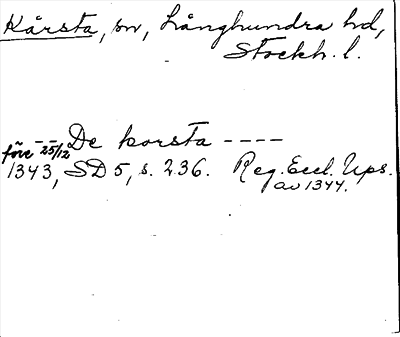 Kårsta, sn, Långhundra hd,
Stockh. l.
-- De korsta ----
före 25/12
1343, SD 5, s. 236. Reg. Eccl. Ups.
av 1344.